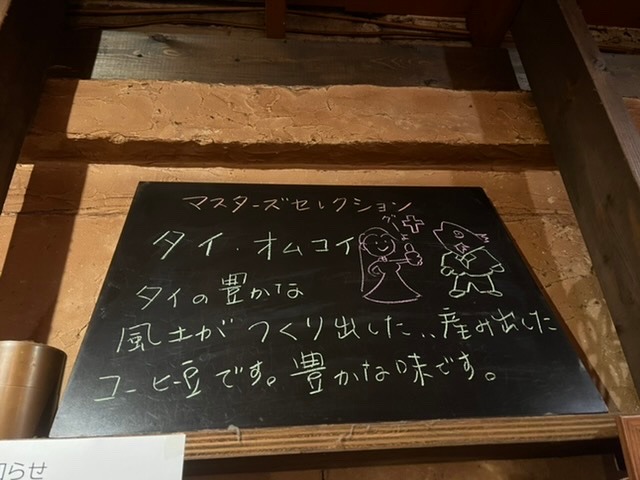 マスターズセレクション
タイ・オムコイ
タイの豊かな
風土がつくり出した、、産み出した
コーヒー豆です。豊かな味です。
らせ